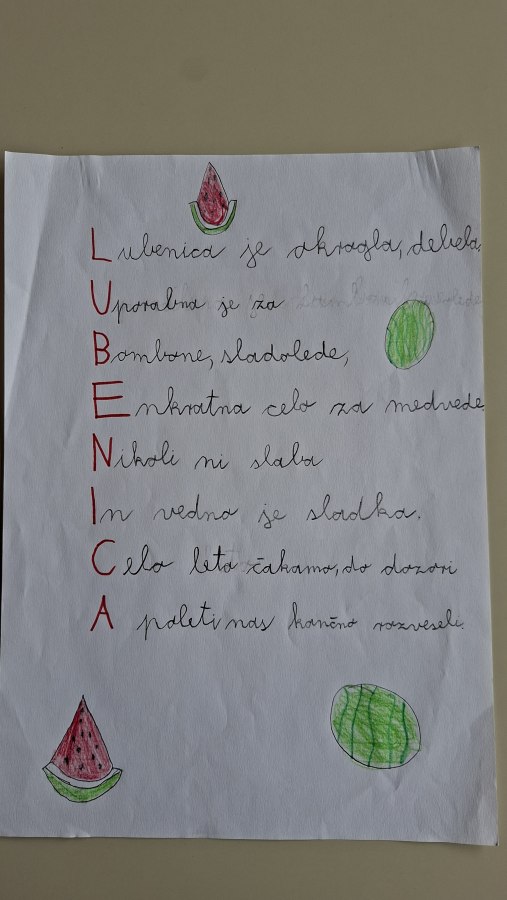 Lubenica je okrogla, debela,
Uporabna je za
Bombone, sladolede,
Enkratna celo za medvede.
Nikoli ni slaba
In vedno je sladka.
Celo leto čakamo, do dozori
A poleti nas končno razveseli.